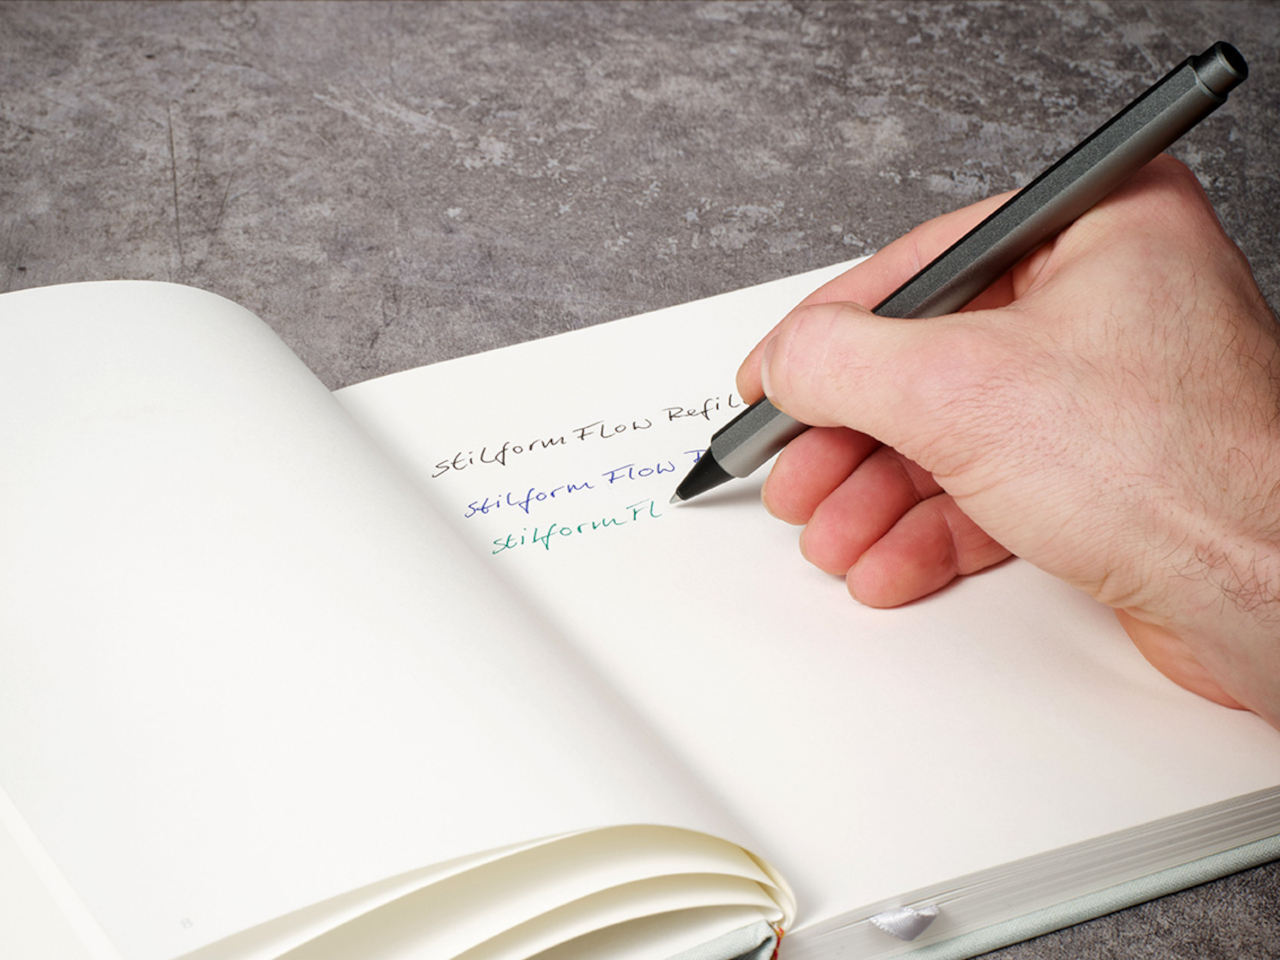 stilform Flow Refil
stilform Flow
stilform Fl
8